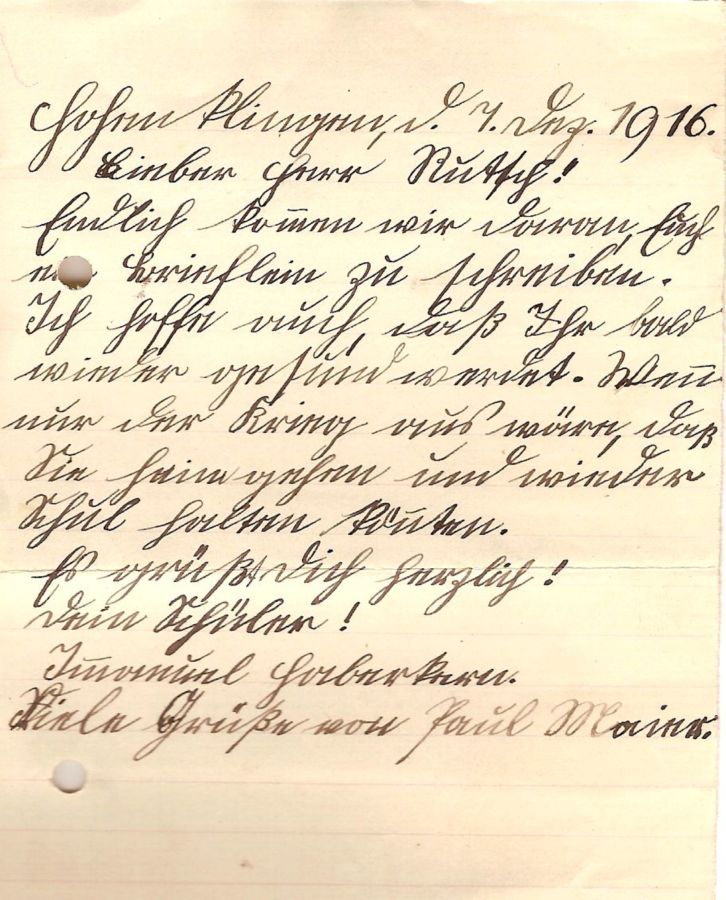 Hohenklingen, d. 7. Dez. 1916.
Lieber Herr Rutsch!
Endlich kommen wir daran, Euch
ein Brieflein zu schreiben.
Ich hoffe auch, daß Ihr bald
wieder gesund werdet. Wenn
nur der Krieg aus wäre, daß
Sie heim gehen und wieder
Schul halten könnten.
Es grüßt Dich herzlich!
Dein Schüler!
Immanuel Haberkern.
Viele Grüße von Paul Maier.